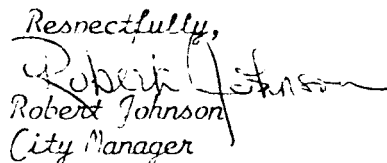 Respectfully,
Robert Johnson
Robert Johnson
City Manager